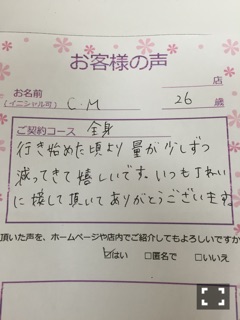 お客様の声
店
お名前
(イニシャル可) C.M 26 歳
ご契約コース 全身
行き始めた頃より量が少しずつ
減ってきて嬉しいです。いつもていねい
に接して頂いてありがとうございます
頂いた声を、ホームページや店内でご紹介してもよろしいですか
☑はい □匿名で □いいえ